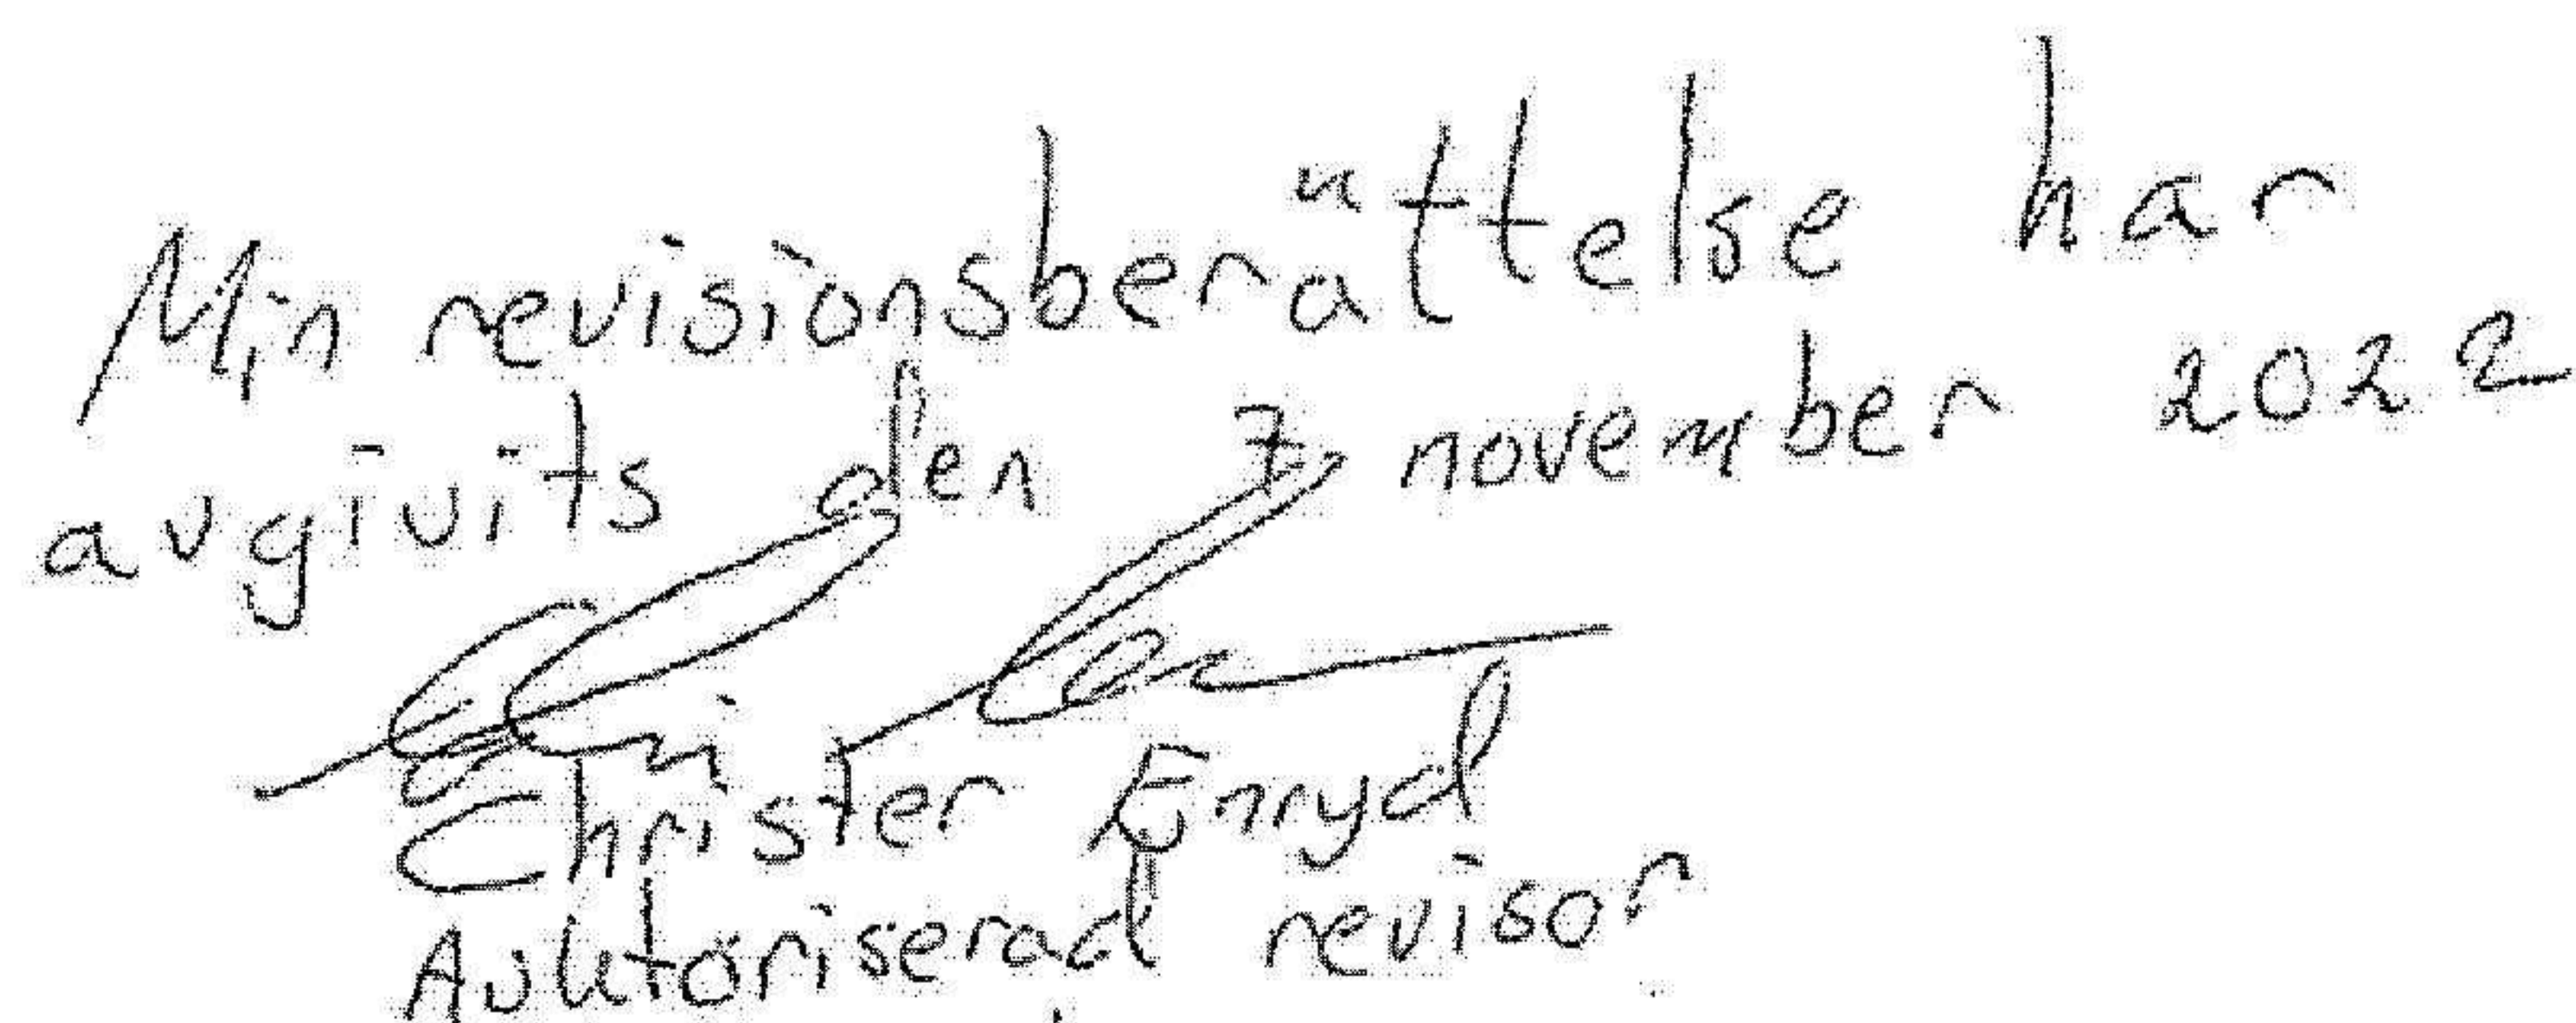 Min revisionsberättelse har
avgivits den 7 november 2022
Christer Enryd
Auktoriserad revisor